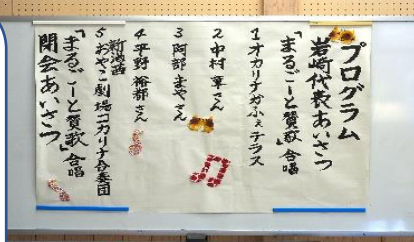 プログラム
岩崎代表あいさつ
「まるごーと賛歌」合唱
1 オカリナかふぇテラス
2 中村 章さん
3 阿部 まやさん
4 平野 裕都さん
5 新潟西おやこ劇場コカリナ合奏団
「まるごーと賛歌」合唱
閉会あいさつ